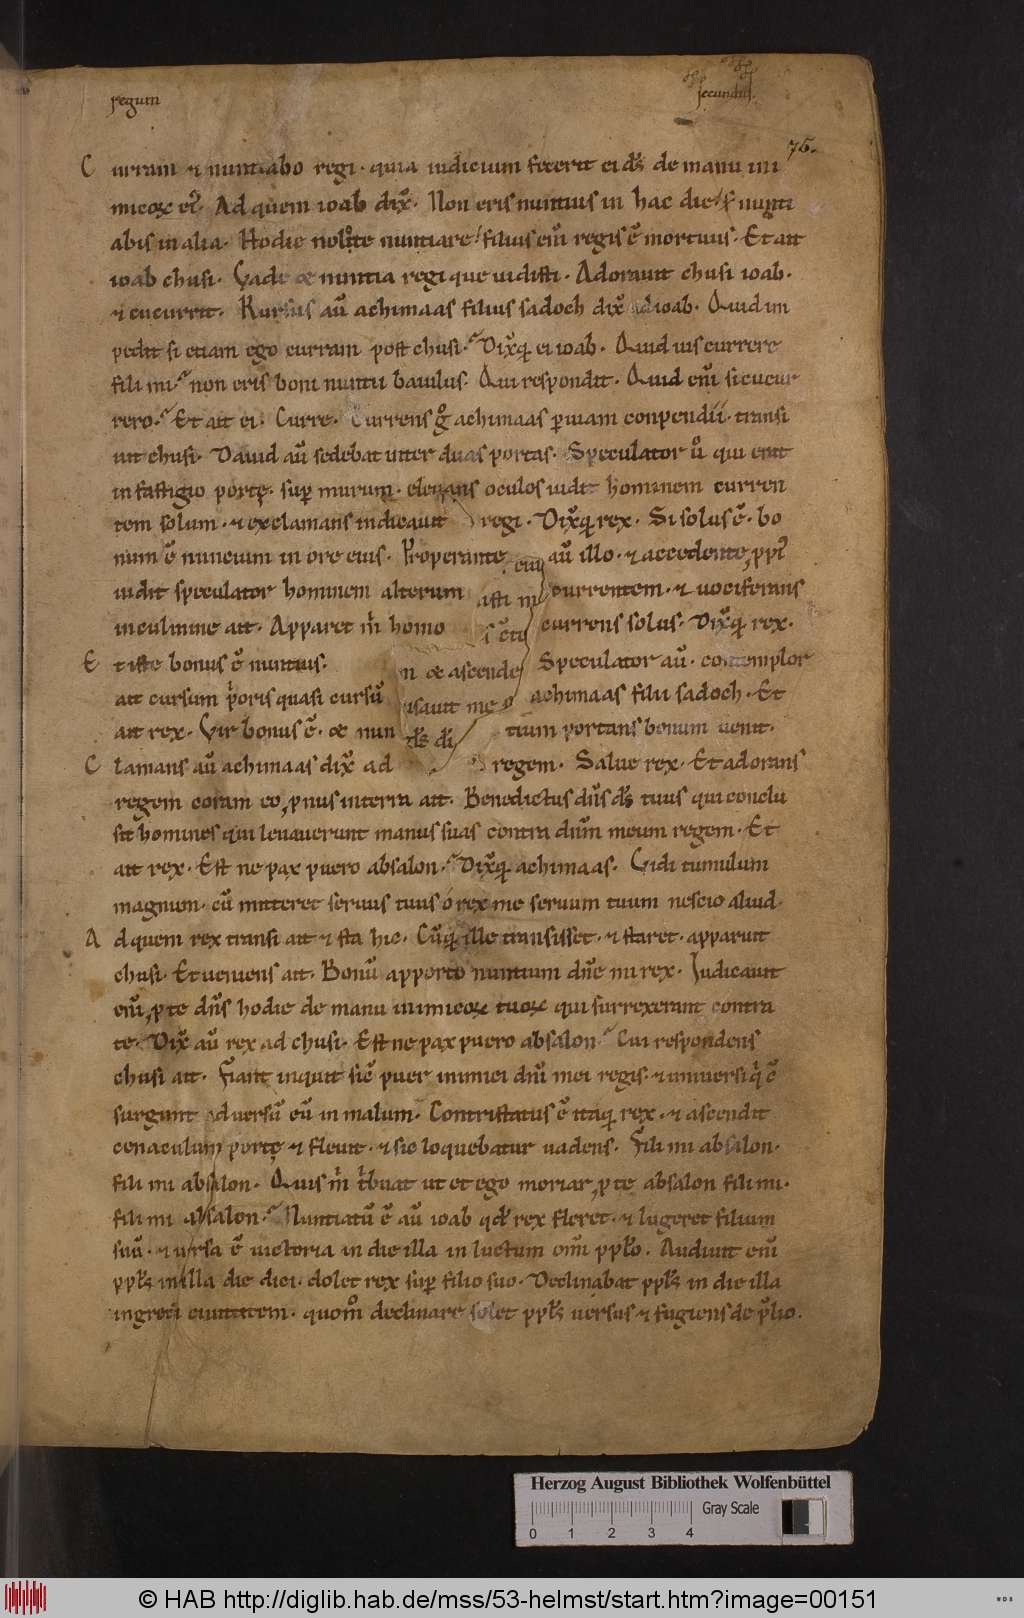 regum
secundus.
75.
Curram ⁊ nuntiabo regi· quia iudicium fecerit ei ds̄ de manu ini
micoꝝ ei᷒· Ad quem ioab dix̄· Non eris nuntius in hac die/ s; nunti
abis in alia· Hodie nolite nuntiare/ filius em̄ regis ē mortuus· Et ait
ioab chusi· Vade & nuntia regi que uidisti· Adorauit chusi ioab·
⁊ cucurrit· Rursus aū achimaas filius sadoch dix̄ ad ioab· Quid im
pedit si etiam ego curram post chusi· Dix̄q; ei ioab· Quid uis currere
fili mi· non eris boni nuntii baiulus· Qui respondit· Quid em̄ si cucur
rero· Et ait ei· Curre· Currens gͦ achimaas p̱ uiam conpendii· transi
uit chusi· Dauid aū sedebat inter duas portas· Speculator u̇ qui erat
in fastigio portę· sup̱ murum· eleuans oculos uidit hominem curren
tem solum· ⁊ exclamans indicauit regi· Dix̄q; rex· Si solus ē· bo
num ē nuncium in ore eius· Properante aū illo· ⁊ accedente ꝓpi᷒
uidit speculator hominem alterum currentem· ⁊ uociferans
in culmine ait· Apparet m̄ homo currens solus· Dix̄q; rex·
Et iste bonus ē nuntius· Speculator aū· contemplor
n & ascende
ait cursum p̄oris quasi cursū achimaas filii sadoch· Et
isauit me
ait rex· Vir bonus ē· & nun tium portans bonum uenit·
Clamans aū achimaas dix̄ ad regem· Salue rex· Et adorans
regem coram eo, ꝓnus in terra ait· Benedictus dn̄s ds̄ tuus qui conclu
sit homines qui leuauerunt manus suas contra dn̄m meum regem· Et
ait rex· Est ne pax puero absalon· Dix̄q; achimaas· Vidi tumulum
magnum· cū mitteret seruus tuus o rex me seruum tuum nescio aliud·
Ad quem rex transi ait ⁊ sta hic· Cūq; ille transisset· ⁊ staret· apparuit
chusi· Et ueniens ait· Bonū apporto nuntium dn̄e mi rex· Iudicauit
em̄, ꝓ te dn̄s hodie de manu inimicoꝝ tuoꝝ qui surrexerant contra
te· Dix̄ aū rex ad chusi· Est ne pax puero absalon· Cui respondens
chusi ait· Fiant inquit sic̄ puer inimici dn̄i mei regis· ⁊ uniuersi q̄ c̄
surgunt aduersū eū in malum· Contristatus ē itaq; rex· ⁊ ascendit
cenaculum portę ⁊ fleuit· ⁊ sic loquebatur uadens· Fili mi absalon·
fili mi absalon· Quis m̄ t̄buat ut et ego moriar, ꝓ te absalon fili mi·
fili mi absalon· Nuntiatū ē aū ioab qđ rex fleret· ⁊ lugeret filium
suū· ⁊ uersa ē uictoria in die illa in luctum om̄i pp̄lo· Audiuit em̄
pp̄ls in illa die dici· dolet rex sup̱ filio suo· Declinabat pp̄ls in die illa
ingredi ciuitatem· quom̊ declinare solet pp̄ls uersus ⁊ fugiens de p̄lio·
Herzog August Bibliothek Wolfenbüttel
Gray Scale
0 1 2 3 4
© HAB http://diglib.hab.de/mss/53-helmst/start.htm?image=00151